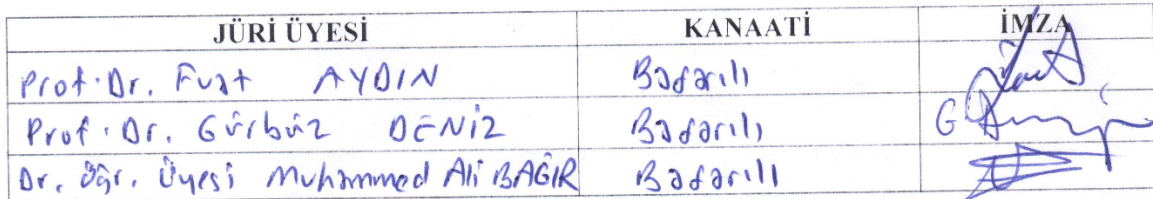 JÜRİ ÜYESİ KANAATİ İMZA
Prof. Dr. Fuat AYDIN Başarılı
Prof. Dr. Gürbüz DENİZ Başarılı
Dr. Öğr. Üyesi Muhammed Ali BAĞIR Başarılı